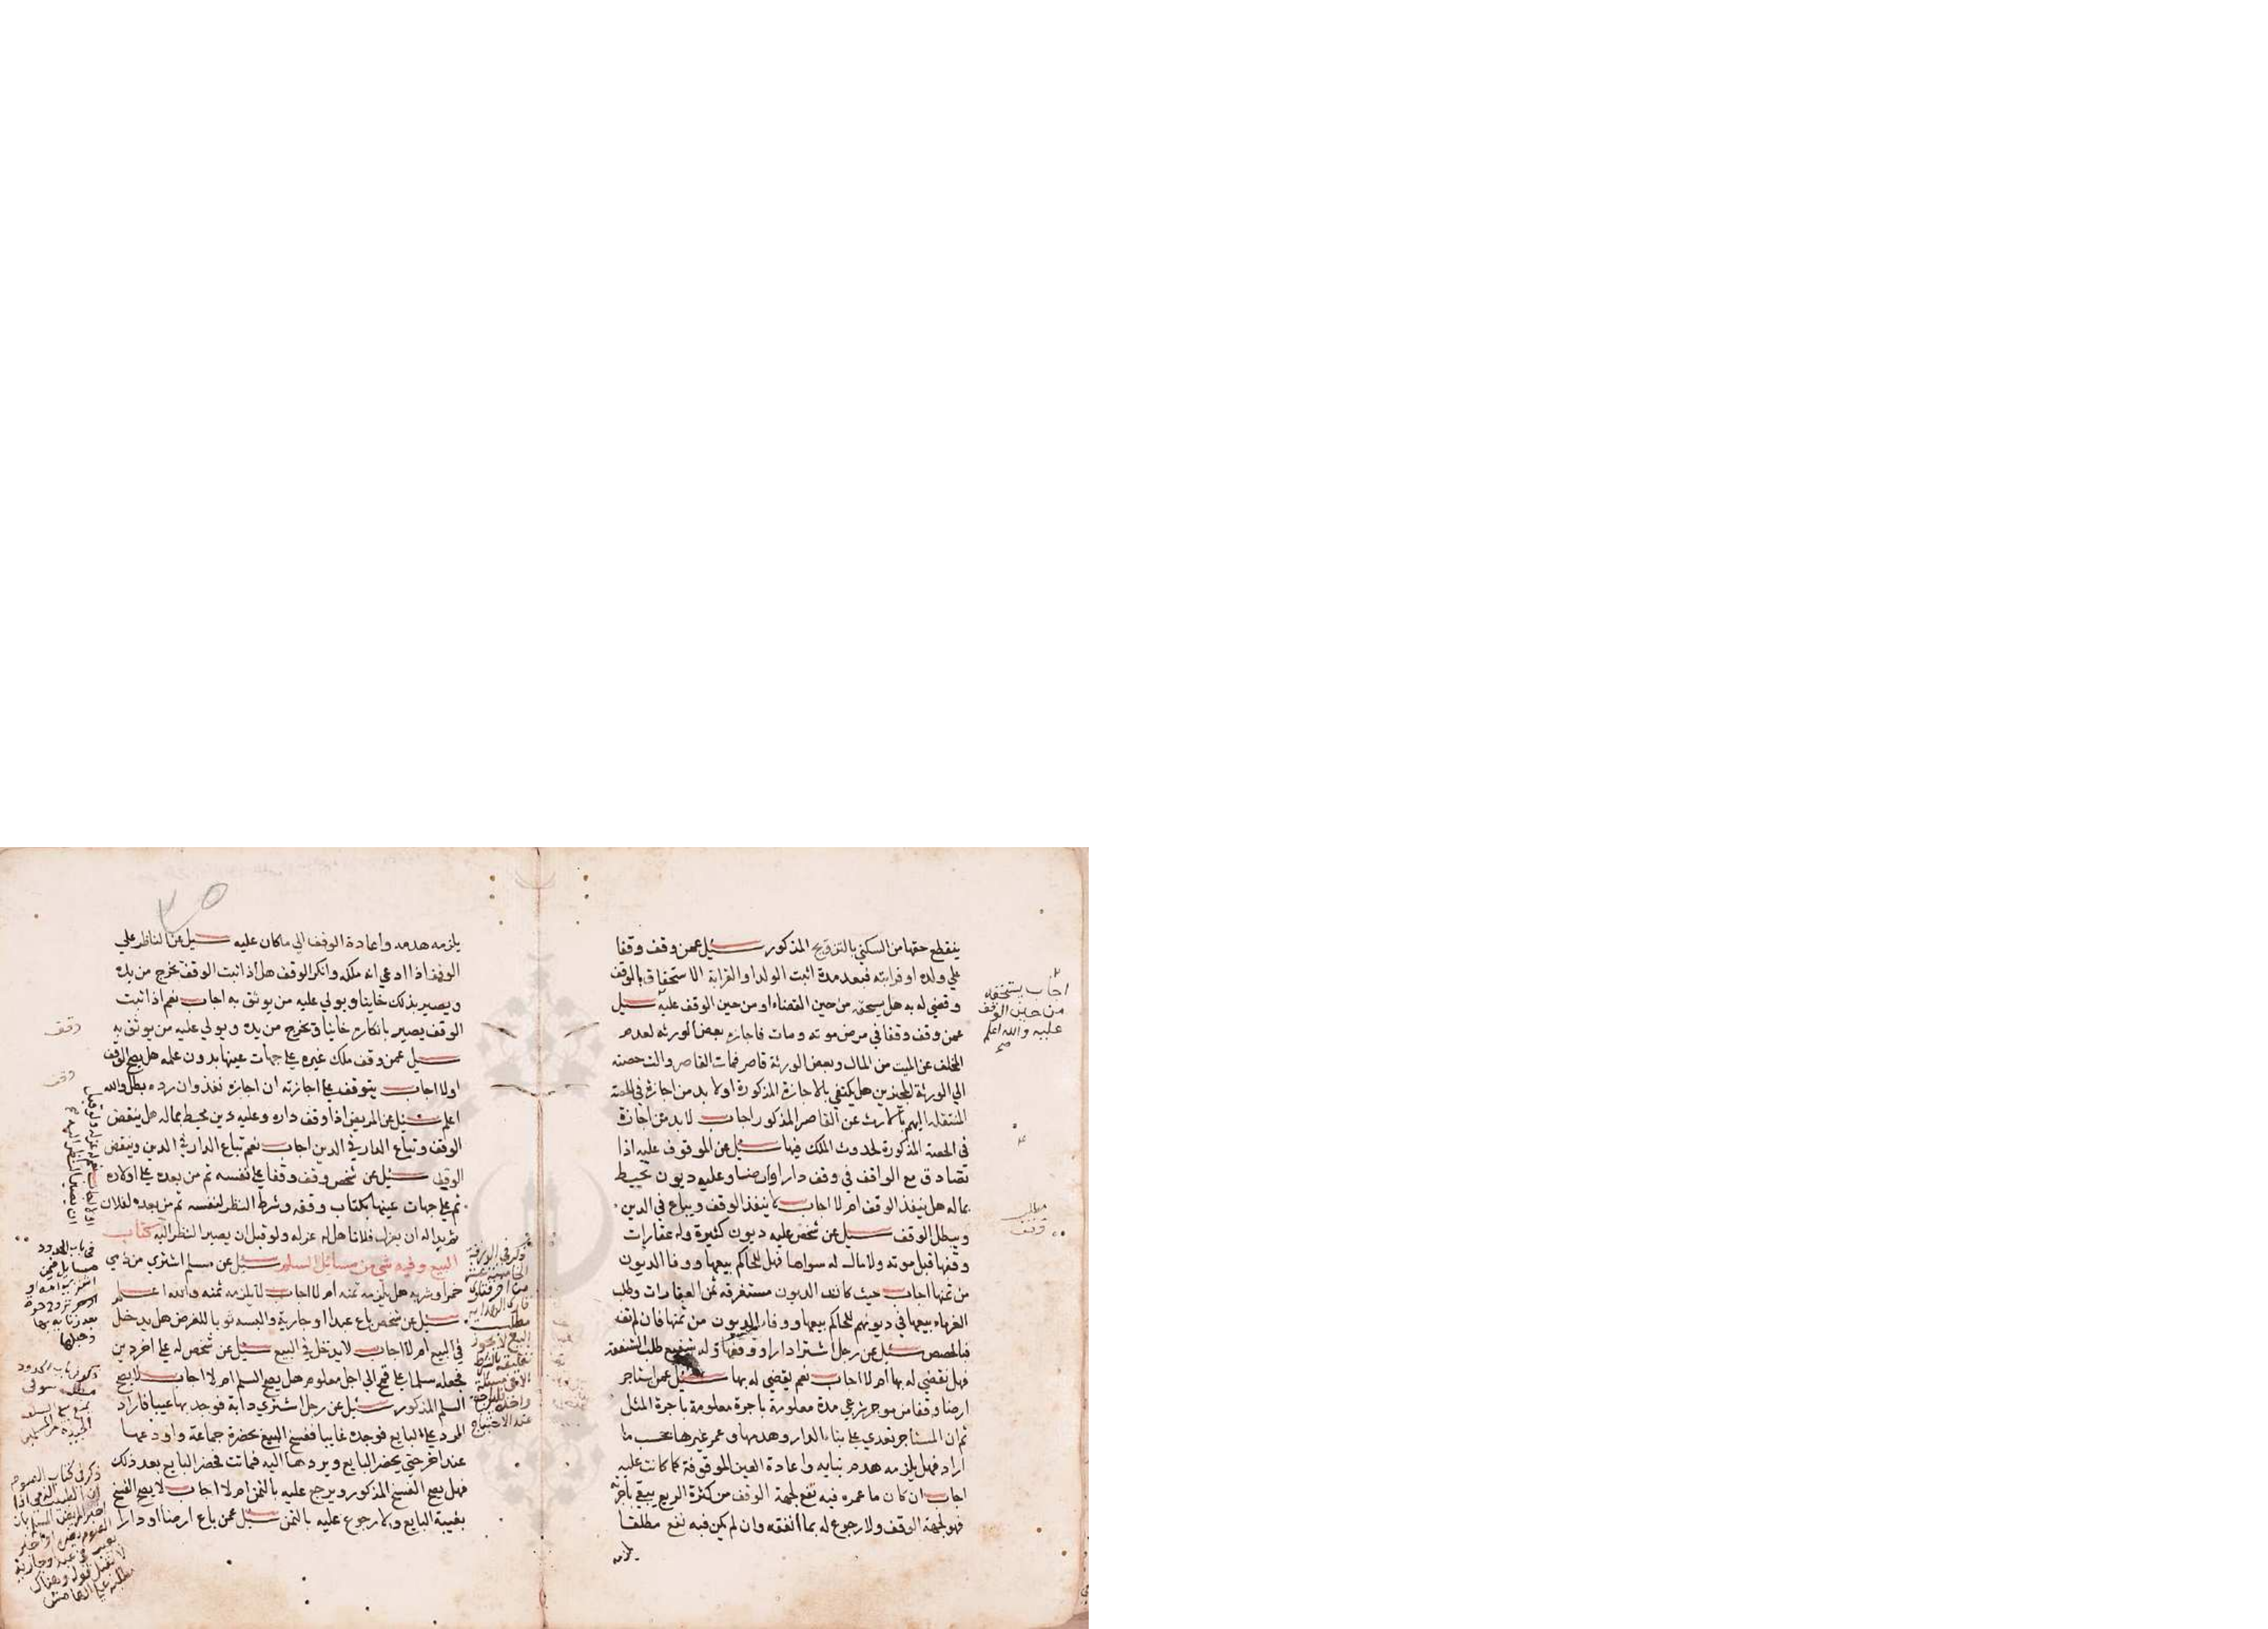 ينقطع حقها من السكني بالتزويج المذكور سئيل عمن وقف وقفا
علي ولده او قرابته فبعد مدة اثبت الولد او القرابة الاستحقاق بالوقف
وقضي له به هل يستحقه من حين القضاء او من حين الوقف عليه سئيل
عمن وقف وقفا في مرض موته ومات فاجازه بعض الورثه لعدم
المخلف عن الميت من المال وبعض الورثة قاصر فمات القاصر والت حصته
الي الورثة المجيزين هل يكتفي بالاجازة المذكورة او لا بد من اجازة في الحصة
المنتقلة اليهم بالارث عن القاصر المذكور اجاب لا بد من اجازة
في الحصة المذكورة لحدوث الملك فيها سئيل عن الموقوف عليه اذا
تصادق مع الواقف في وقف دار او ارضا وعليه ديون تحيط
بماله هل ينفذ الوقف ام لا اجاب لا ينفذ الوقف ويباع في الدين
ويبطل الوقف سئيل عن شخص عليه ديون كثيرة وله عقارات
وقفها قبل موته ولا مال له سواها فهل للحاكم بيعها ووفا الديون
من ثمنها اجاب حيث كانت الديون مستغرقه ثمن العقارات وطلب
الغرماء بيعها في ديونهم للحاكم بيعها ووفاء الديون من ثمنها فان لم تف
فبالحصص سئيل عن رجل اشترا دارا ووقفها وله شفيع طلب الشفعة
فهل تقضي له بها ام لا اجاب نعم يقضي له بها سئيل عمن استاجر
ارضا وقفا من موجر شرعي مدة معلومة باجرة معلومة باجرة المثل
ثم ان المستاجر تعدي علي بناء الدار وهدمها وعمر غيرها بحسب ما
اراد فهل يلزمه هدم بنايه واعادة العين الموقوفة كما كانت عليه
اجاب ان كان ما عمره فيه نفع لجهة الوقف من كثرة الريع يبقي باجرته
فهو لجهة الوقف ولا رجوع له بما انفقه وان لم يكن فيه نفع مطلقا
يلزمه
اجاب يستحقه
من حين الوقف
عليه والله اعلم
صح
مطلب
وقف
يلزمه هدمه واعادة الوقف الي ماكان عليه سئيل عن الناظر علي
الوقف اذا ادعي انه ملكه وانكر الوقف هل اذا ثبت الوقف تخرج من يده
ويصير بذلك خاينا ويولي عليه من يوثق به اجاب نعم اذا ثبت
الوقف يصير بانكاره خاينا وتخرج من يده ويولي عليه من يوثق به
سئيل عمن وقف ملك غيره علي جهات عينها بدون علمه هل يصح الوقف
اولا اجاب يتوقف علي اجازته ان اجازه نفذ وان رده بطل والله
اعلم سئيل عن المريض اذا وقف داره وعليه دين محيط بماله هل ينقض
الوقف وتباع الدار في الدين اجاب نعم تباع الدار في الدين وينقض
الوقف سئيل عن شخص وقف وقفا علي نفسه ثم من بعده علي اولاده
ثم علي جهات عينها بكتاب وقفه وشرط النظر لنفسه ثم من بعده لفلان
ثم بدا له ان يعزل فلانا هل له عزله ولو قبل ان يصير النظر اليه كتاب
البيع وفيه شي من مسائل السلم سئيل عن مسلم اشتري من ذمي
خمرا وشربه هل يلزمه ثمنه ام لا اجاب لا يلزمه ثمنه والله اعلم
سئيل عن شخص باع عبدا او جارية والبسه ثوبا للعرض هل يدخل
في البيع ام لا اجاب لا يدخل في البيع سئيل عن شخص له علي اخر دين
فجعله سلما علي قمح الي اجل معلوم هل يصح السلم ام لا اجاب لا يصح
السلم المذكور سئيل عن رجل اشتري دابة فوجد بها عيبا فاراد
الرد علي البايع فوجده غايبا ففسخ البيع بحضرة جماعة واودعها
عند اخر حتي يحضر البايع ويردها اليه فماتت فحضر البايع بعد ذلك
فهل يصح الفسخ المذكور ويرجع عليه بالثمن ام لا اجاب لا يصح الفسخ
بغيبة البايع ولا رجوع عليه بالثمن سئيل عمن باع ارضا او دارا
وقف
وقف
في باب الحدود
مسايل فيمن
ذكر في باب الحدود
ذكر في كتاب الصوم
ان الطبيب الذمي اذا
اخبر المريض المسلم بان
لا تقبل قوله وهناك
ذكر في الورقة
مطلب
البيع لا يجوز
تعليقه بالشرط
عند الاحتياج